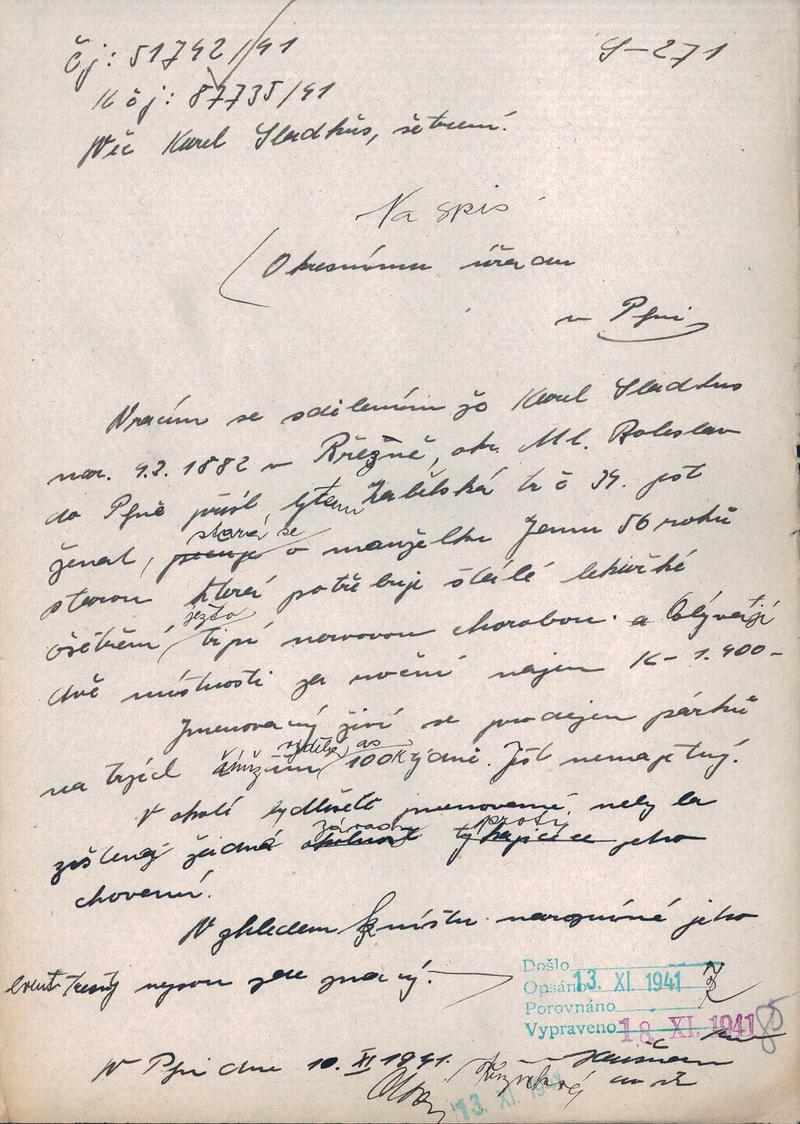 Čj: 51742/41
S-271
K čj: 87735/41
Věc Karel Sladkus, šetření.
Na spis
Okresnímu úřadu
v Plzni
Vracím se sdělením že Karel Sladkus
nar. 9.3. 1882 v Březně, okr. Ml. Boleslav
do Plzně přísl, bytem tř č 34. jest
ženat, pečuje stará se o manželku Janu 56 roků
starou která potřebuje stálé lékařské
ošetření, ježto trpí nervovou chorobou. a Obývají
dvě místnosti za roční nájem K- 1.400-
Jmenovaný živí se prodejem párků
na trzích čímž vydělá as 100K týdně. Jest nemajetný.
V okolí bydliště jmenovaného nebyla
zjištěna žádná závada proti jeho
chování.
Vzhledem k místu narození jeho
event. tresty nejsou zde známý.
Došlo
Opsáno 13. XI. 1941
Porovnáno
Vypraveno 18. XI. 1941
V Plzni dne 10. XI 1941.
13. XI. 1941